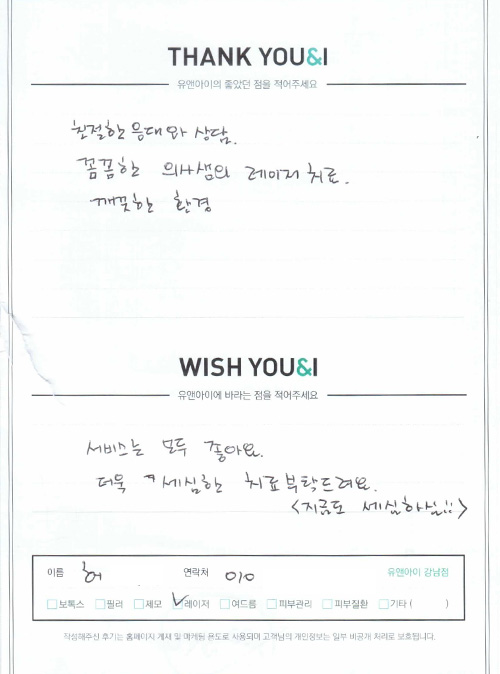 THANK YOU&I
유앤아이의 좋았던 점을 적어주세요
친절한 응대와 상담.
꼼꼼한 의사쌤의 레이저 치료.
깨끗한 환경
WISH YOU&I
유앤아이에 바라는 점을 적어주세요
서비스는 모두 좋아요.
더욱 세심한 치료부탁드려요.
<지금도 세심하심!!>
이름 허 연락처 010 유앤아이 강남점
보톡스 필러 제모 레이저 여드름 피부관리 피부질환 기타 ( )
작성해주신 후기는 홈페이지 게재 및 마케팅 용도로 사용되며 고객님의 개인정보는 일부 비공개 처리로 보호됩니다.